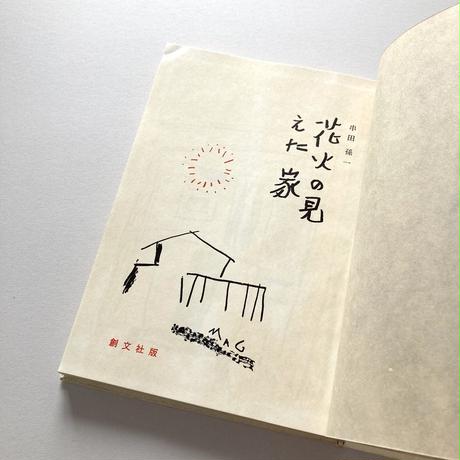 串田 孫一
花火の見
えた家
MAG
創文社版